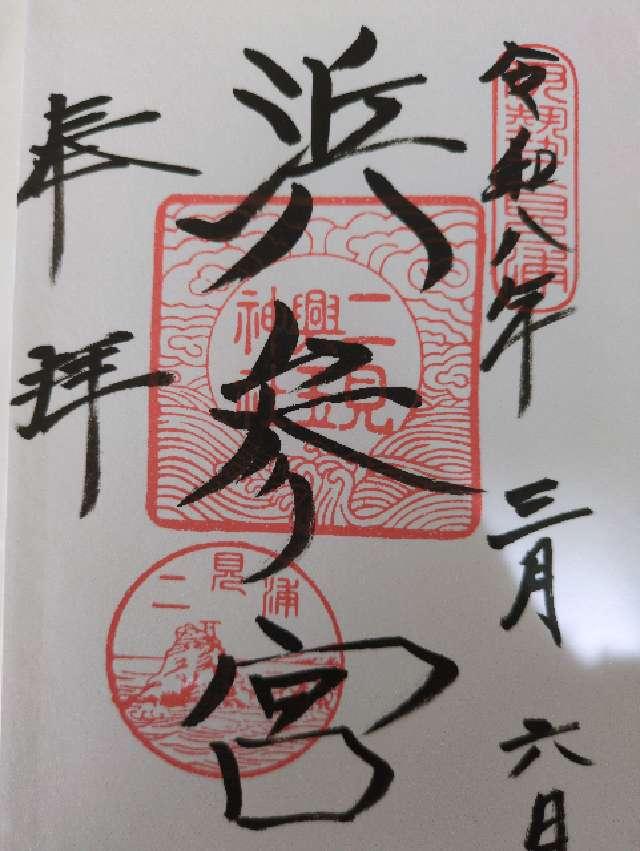 伊勢二見浦
令和八年 三月 六日
浜参宮
二見
興玉
神社
二見浦
奉拝